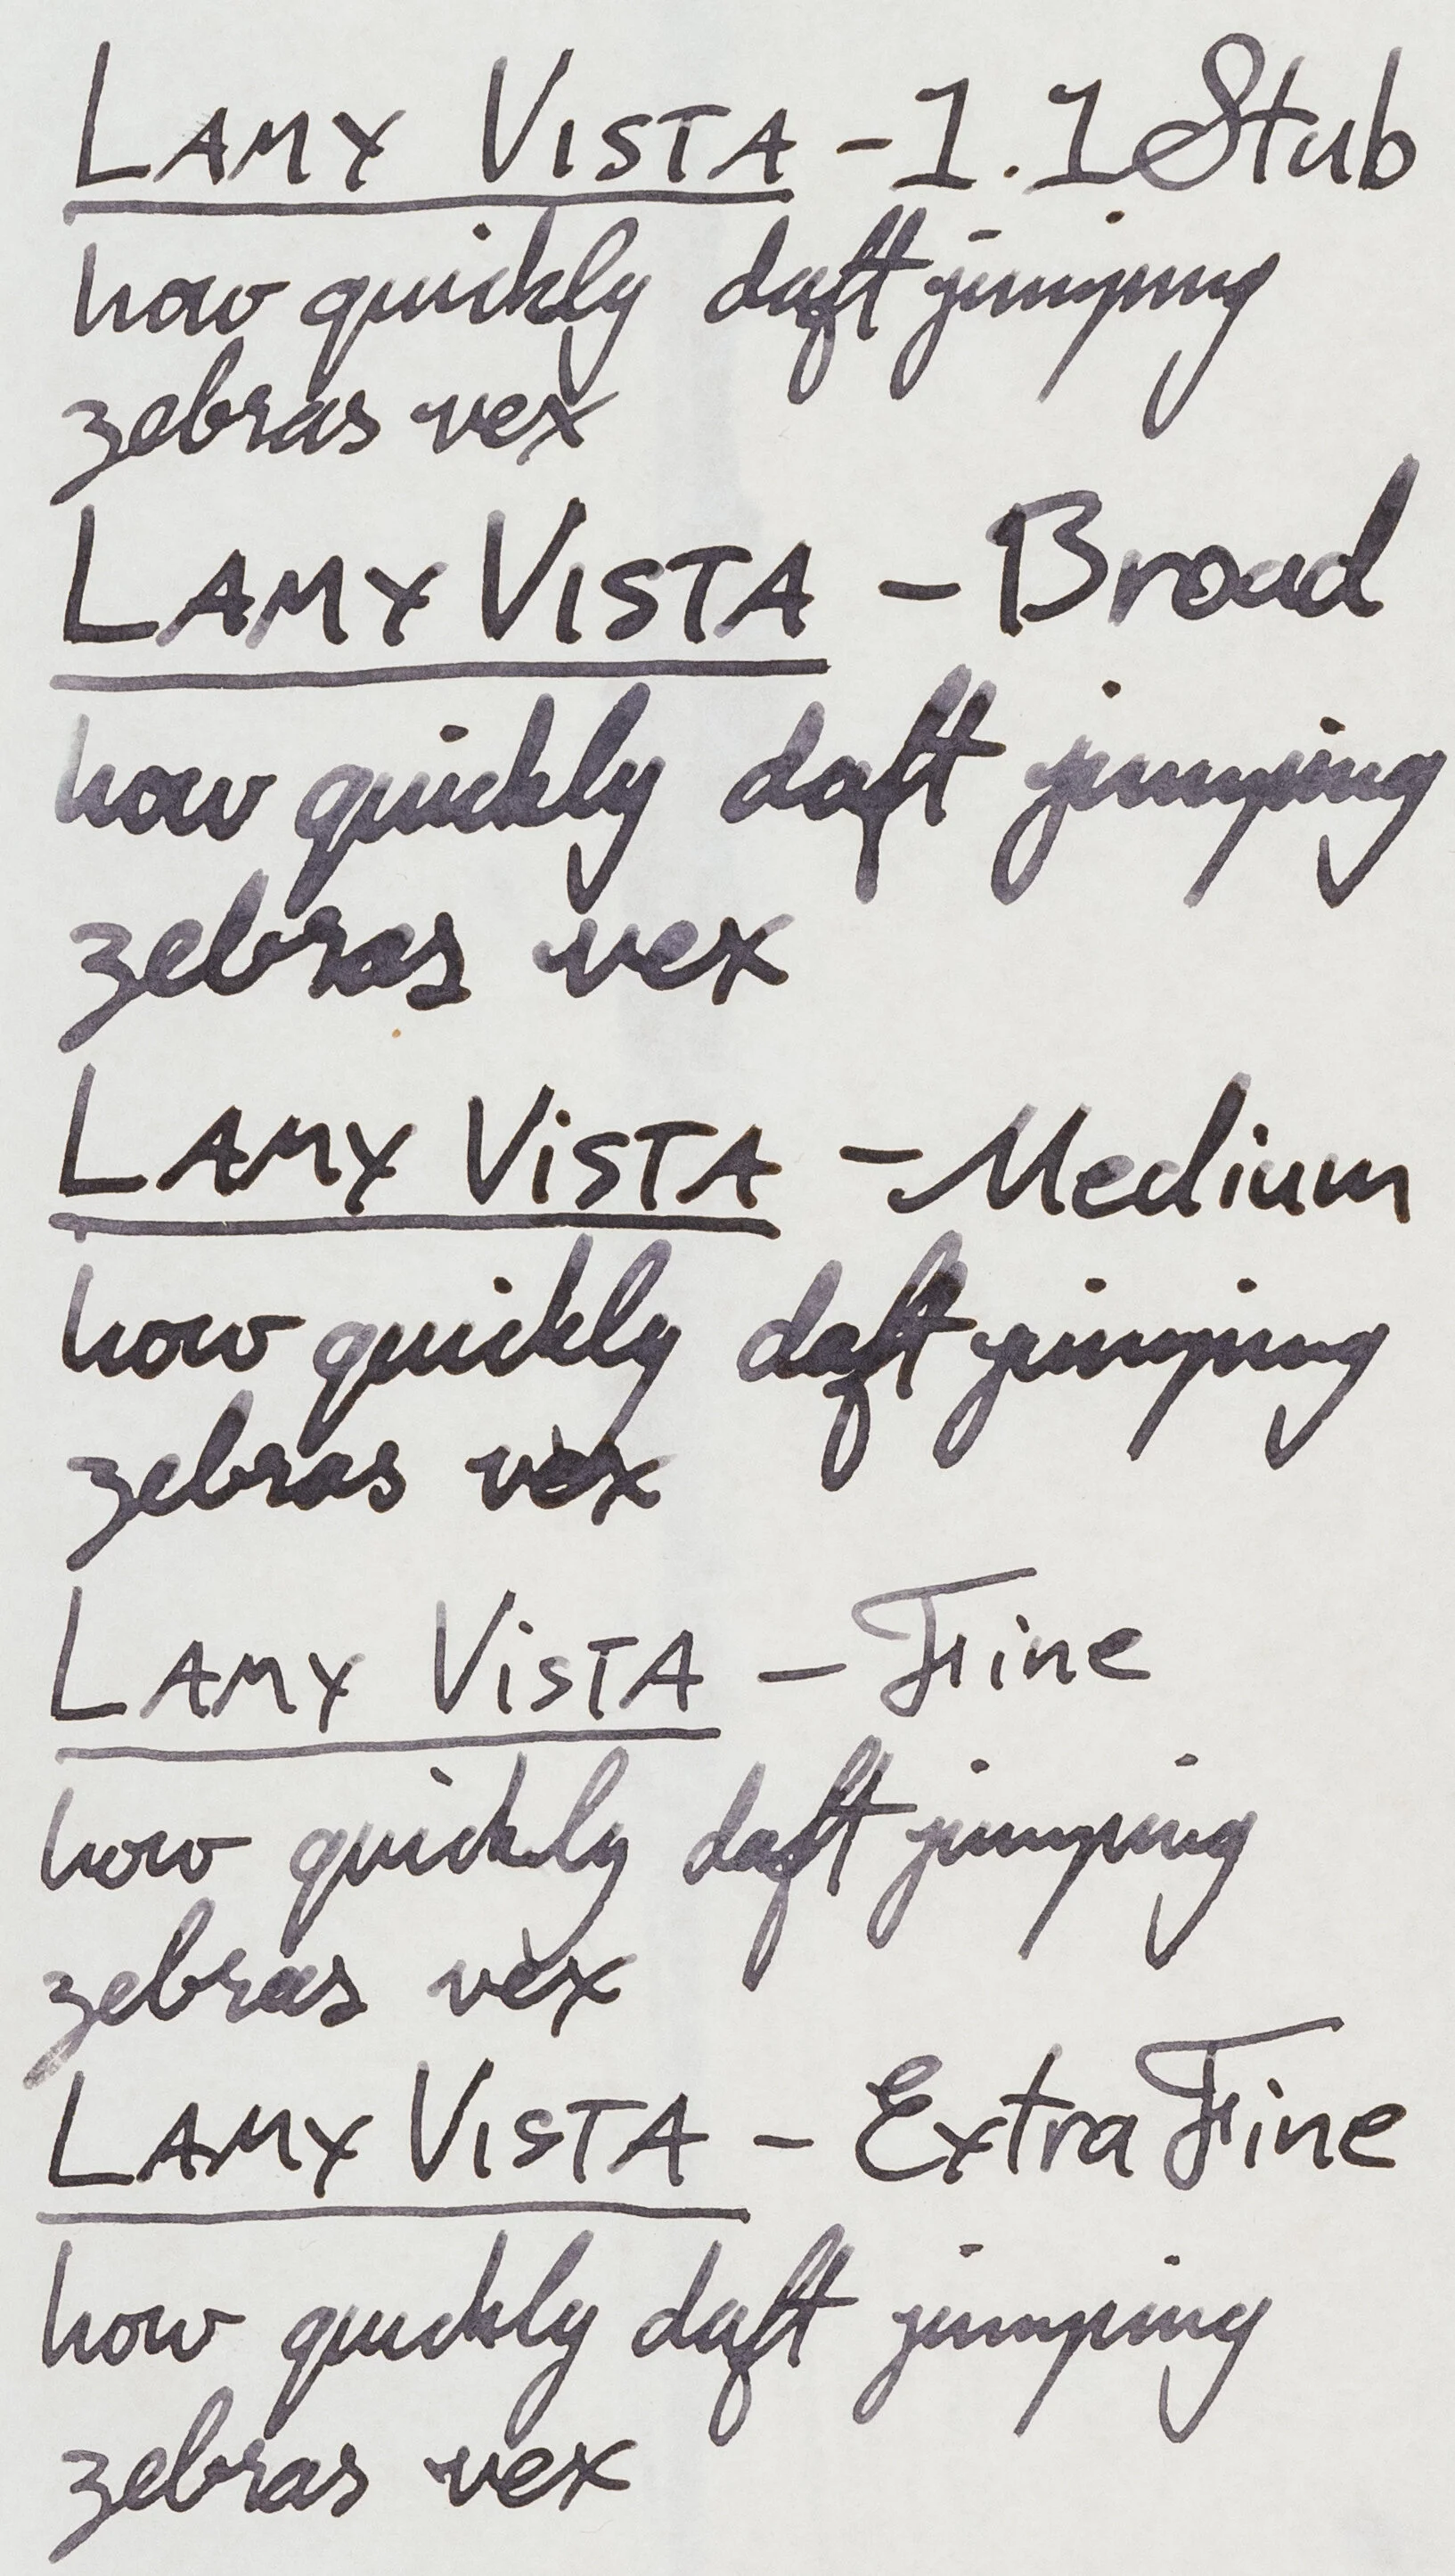 LAMY VISTA - 1.1 Stub
how quickly daft jumping
zebras vex
LAMY VISTA - Broad
how quickly daft jumping
zebras vex
LAMY ViSTA - Medium
how quickly daft jumping
zebras vex
LAMY ViSTA - Fine
how quickly daft jumping
zebras vex
LAMY VISTA - Extra Fine
how quickly daft jumping
zebras vex